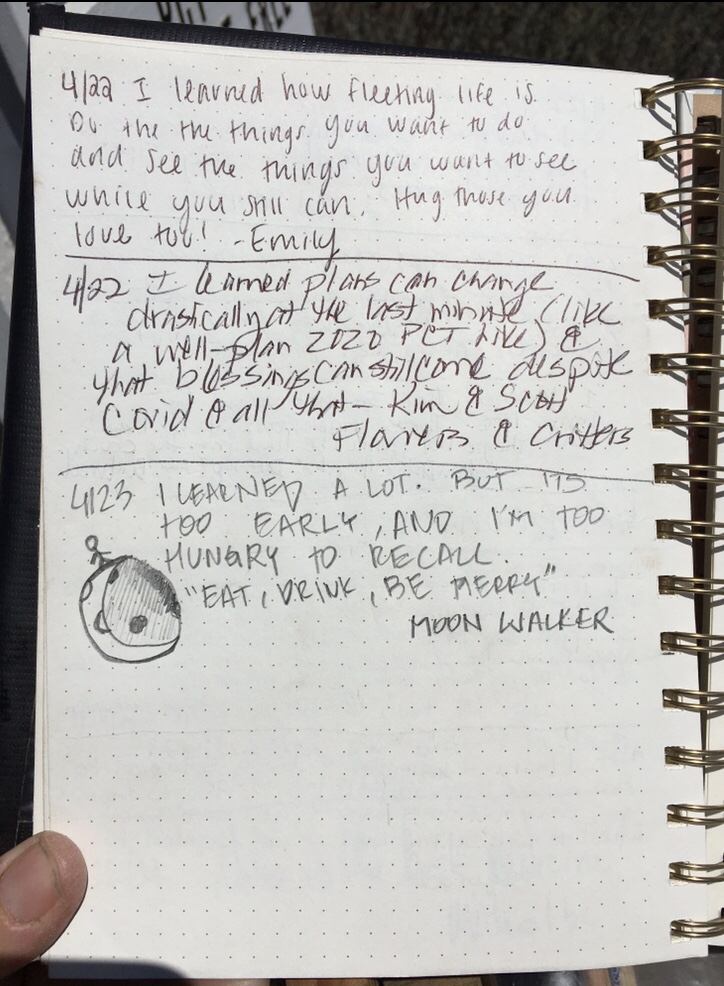 4/22 I learned how fleeting life is.
Do the the things you want to do
and see the things you want to see
while you still can. Hug those you
love too! -Emily
4/22 I learned plans can change
drastically at the last minute (like
a well-plan 2020 PCT hike) &
that blessings can still come despite
Covid & all that - Kim & Scott
Flowers & Critters
4/23 I LEARNED A LOT. BUT ITS
TOO EARLY, AND I'M TOO
HUNGRY TO RECALL.
"EAT, DRINK, BE MERRY"
MOON WALKER